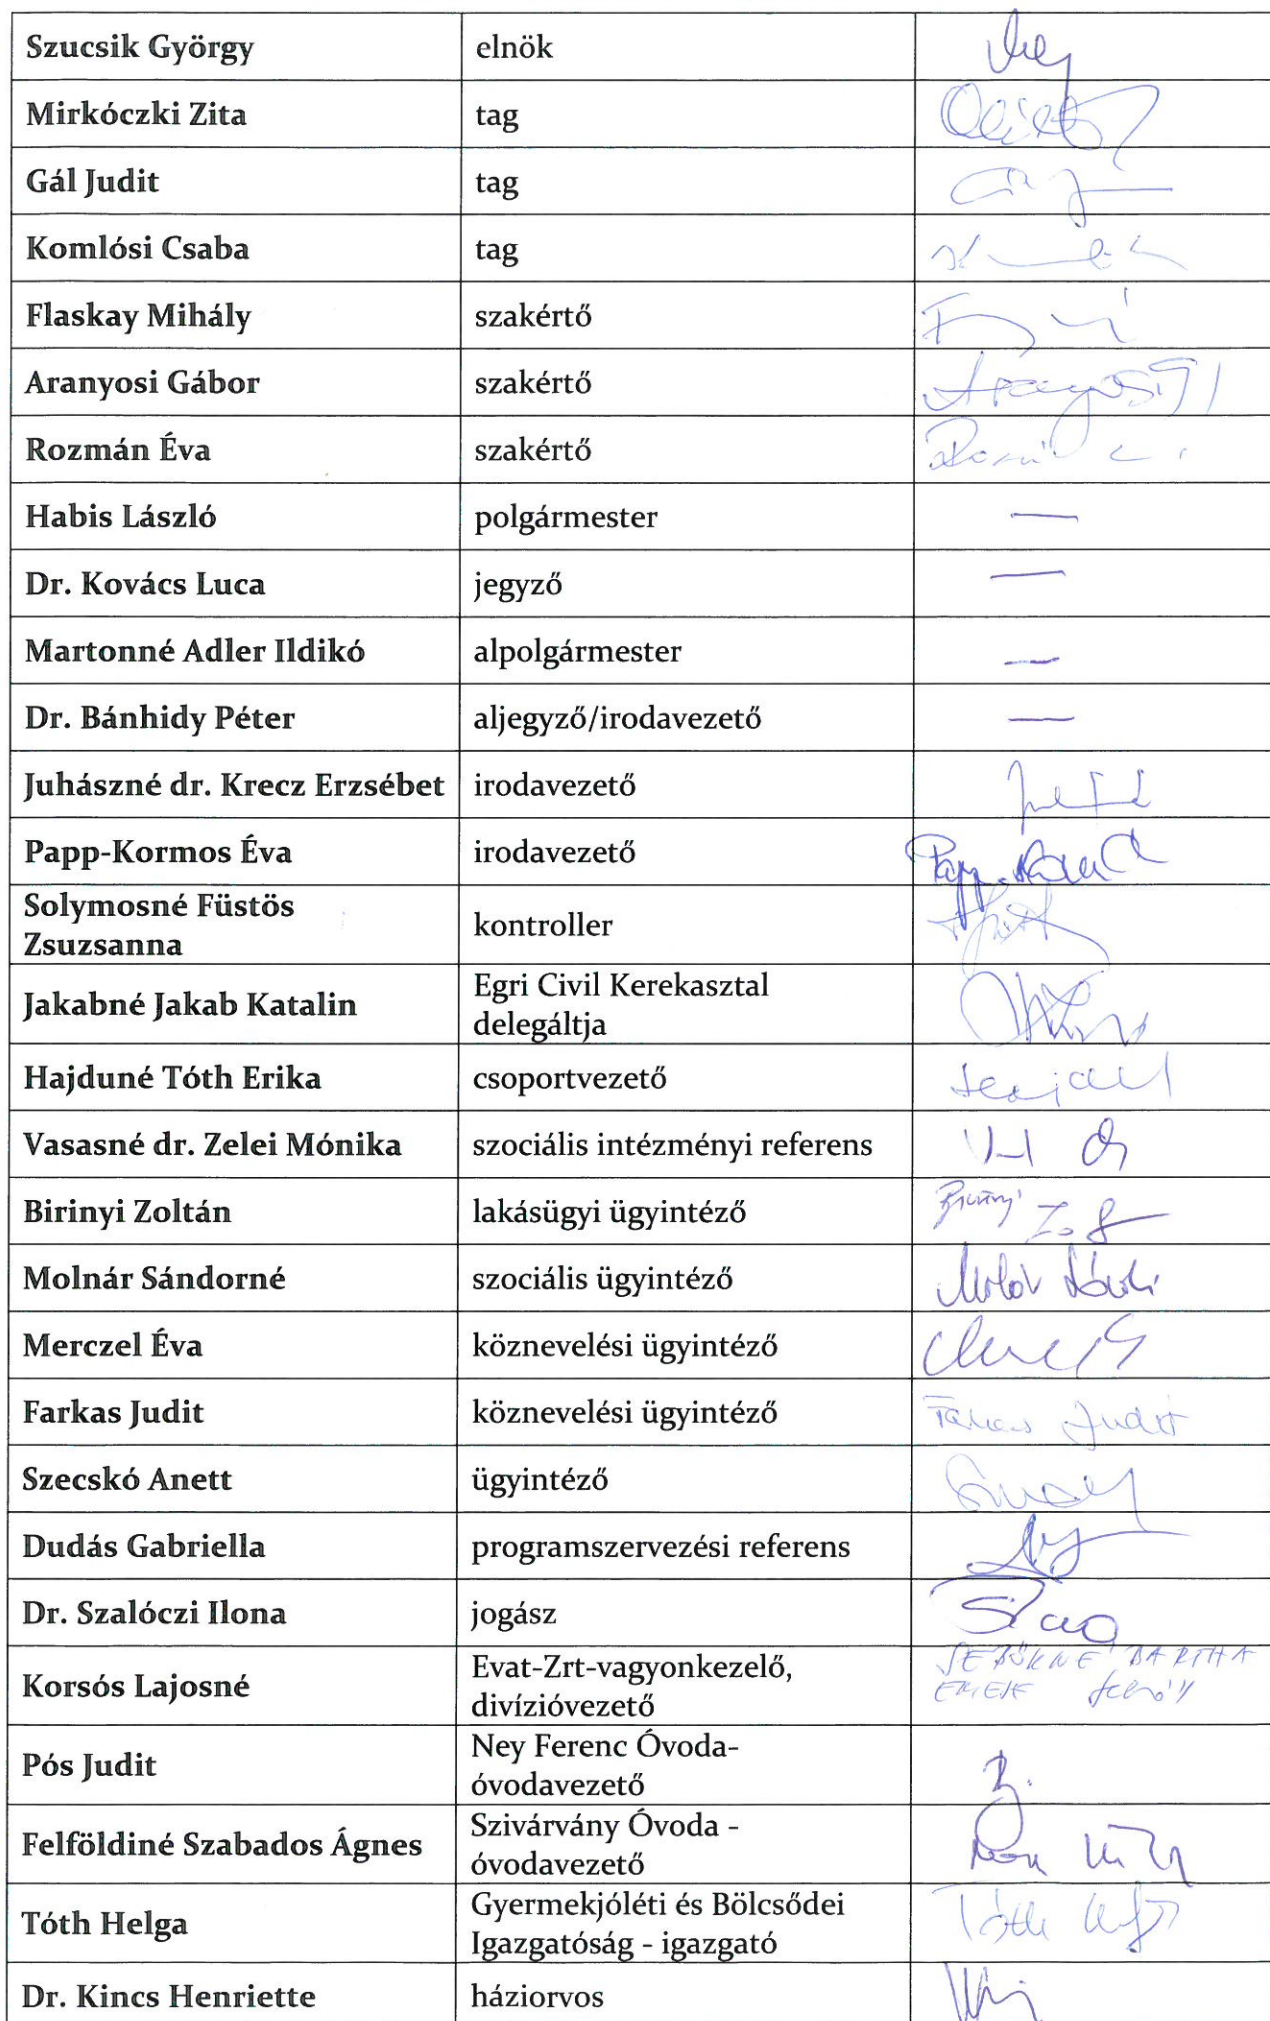 Szucsik György elnök
Mirkóczki Zita tag
Gál Judit tag
Komlósi Csaba tag
Flaskay Mihály szakértő
Aranyosi Gábor szakértő Aranyosi G
Rozmán Éva szakértő
Habis László polgármester —
Dr. Kovács Luca jegyző —
Martonné Adler Ildikó alpolgármester —
Dr. Bánhidy Péter aljegyző/irodavezető —
Juhászné dr. Krecz Erzsébet irodavezető
Papp-Kormos Éva irodavezető
Solymosné Füstös
Zsuzsanna
kontroller
Jakabné Jakab Katalin
Egri Civil Kerekasztal
delegáltja
Hajduné Tóth Erika csoportvezető
Vasasné dr. Zelei Mónika szociális intézményi referens
Birinyi Zoltán lakásügyi ügyintéző Birinyi
Molnár Sándorné szociális ügyintéző
Merczel Éva köznevelési ügyintéző
Farkas Judit köznevelési ügyintéző Farkas Judit
Szecskó Anett ügyintéző
Dudás Gabriella programszervezési referens
Dr. Szalóczi Ilona jogász
Korsós Lajosné
Evat-Zrt-vagyonkezelő,
divízióvezető
BARTHA
EMESE
Pós Judit
Ney Ferenc Óvoda-
óvodavezető
Felföldiné Szabados Ágnes
Szivárvány Óvoda -
óvodavezető
Tóth Helga
Gyermekjóléti és Bölcsődei
Igazgatóság - igazgató
Tóth
Dr. Kincs Henriette háziorvos